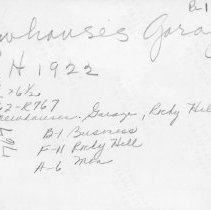 B-1
whouse's Garag
H 1922
6½
62-R767
newhouses. Garage, Rocky Hill
B-1 Business
F-11 Rocky Hill
A-6 Men